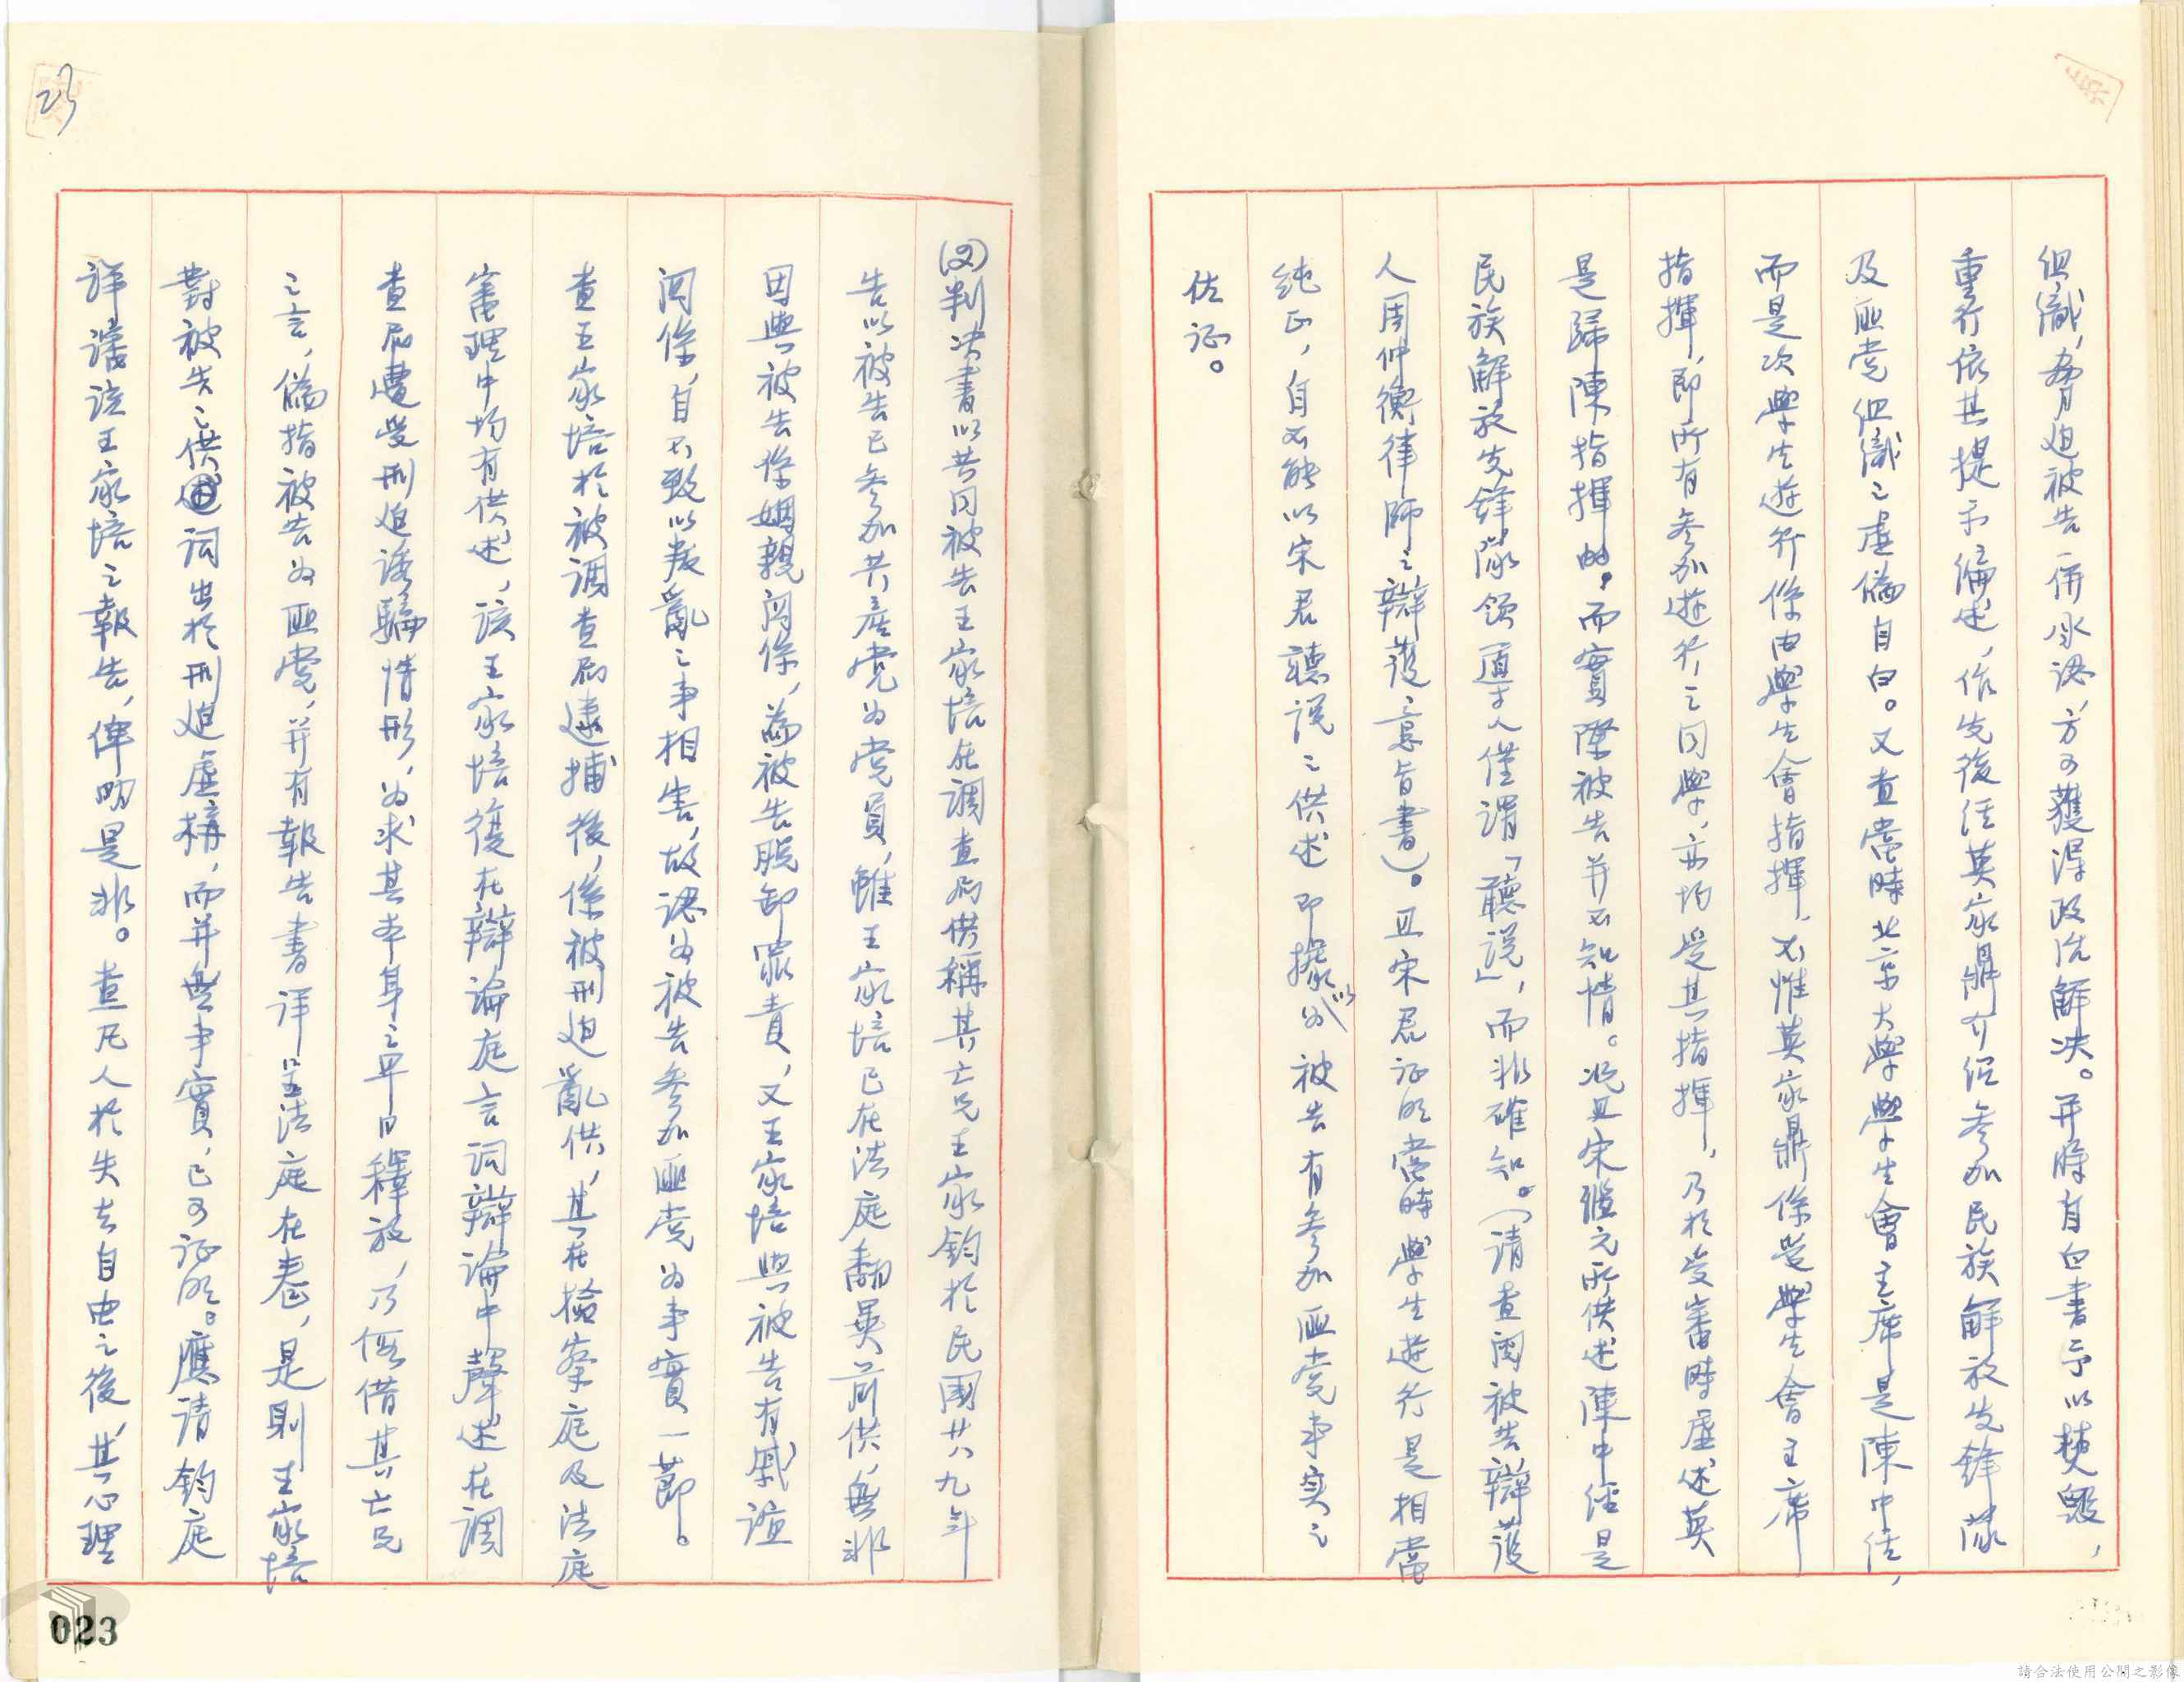 組織，脅迫被告一併承認，方可獲得政治解決。并將自白書予以焚毀，
重行依其提示編述，作先後經英家鼎介紹參加民族解放先鋒隊
及匪党組織之虛偽自白。又查當時北京大學學生會主席是陳中經，
而是次學生遊行係由學生會指揮，不惟英家鼎係受學生會主席
指揮，即所有參加遊行之同學，亦均受其指揮，乃於受審時虛述英
是歸陳指揮的，而實際被告并不知情。况且宋繼元所供述陳中經是
民族解放先鋒隊領導人僅謂「聽説」，而非確知。（請查閱被告辯護
人周仲衡律師之辯護意旨書）。且宋君证明當時學生遊行是相當
純正，自不能以宋君聽説之供述即據以為被告有參加匪党事实之
佐证。
(四)判决書以共同被告王家培在調查局供稱其亡兄王家鈞於民國廿八九年
告以被告已參加共產党为党員，雖王家培已在法庭翻異前供，無非
因與被告係姻親関係，為被告脱卸罪責，又王家培與被告有戚誼
関係，自不致以叛亂之事相害，故認为被告參加匪党为事實一節。
查王家培於被調查局逮捕後，係被刑迫亂供，其在檢察庭及法庭
審理中均有供述，該王家培復在辯論庭言詞辯論中聲述在調
查局遭受刑迫誘騙情形，为求其本身之早日釋放，乃假借其亡兄
之言，偽指被告为匪党，并有報告書详呈法庭在卷，是則王家培
對被告之供詞出於刑迫虛構，而并無事實，已可证明。應請鈞庭
詳讅該王家培之報告，俾明是非。查凡人於失去自由之後，其心理
23
023
請合法使用公開之影像